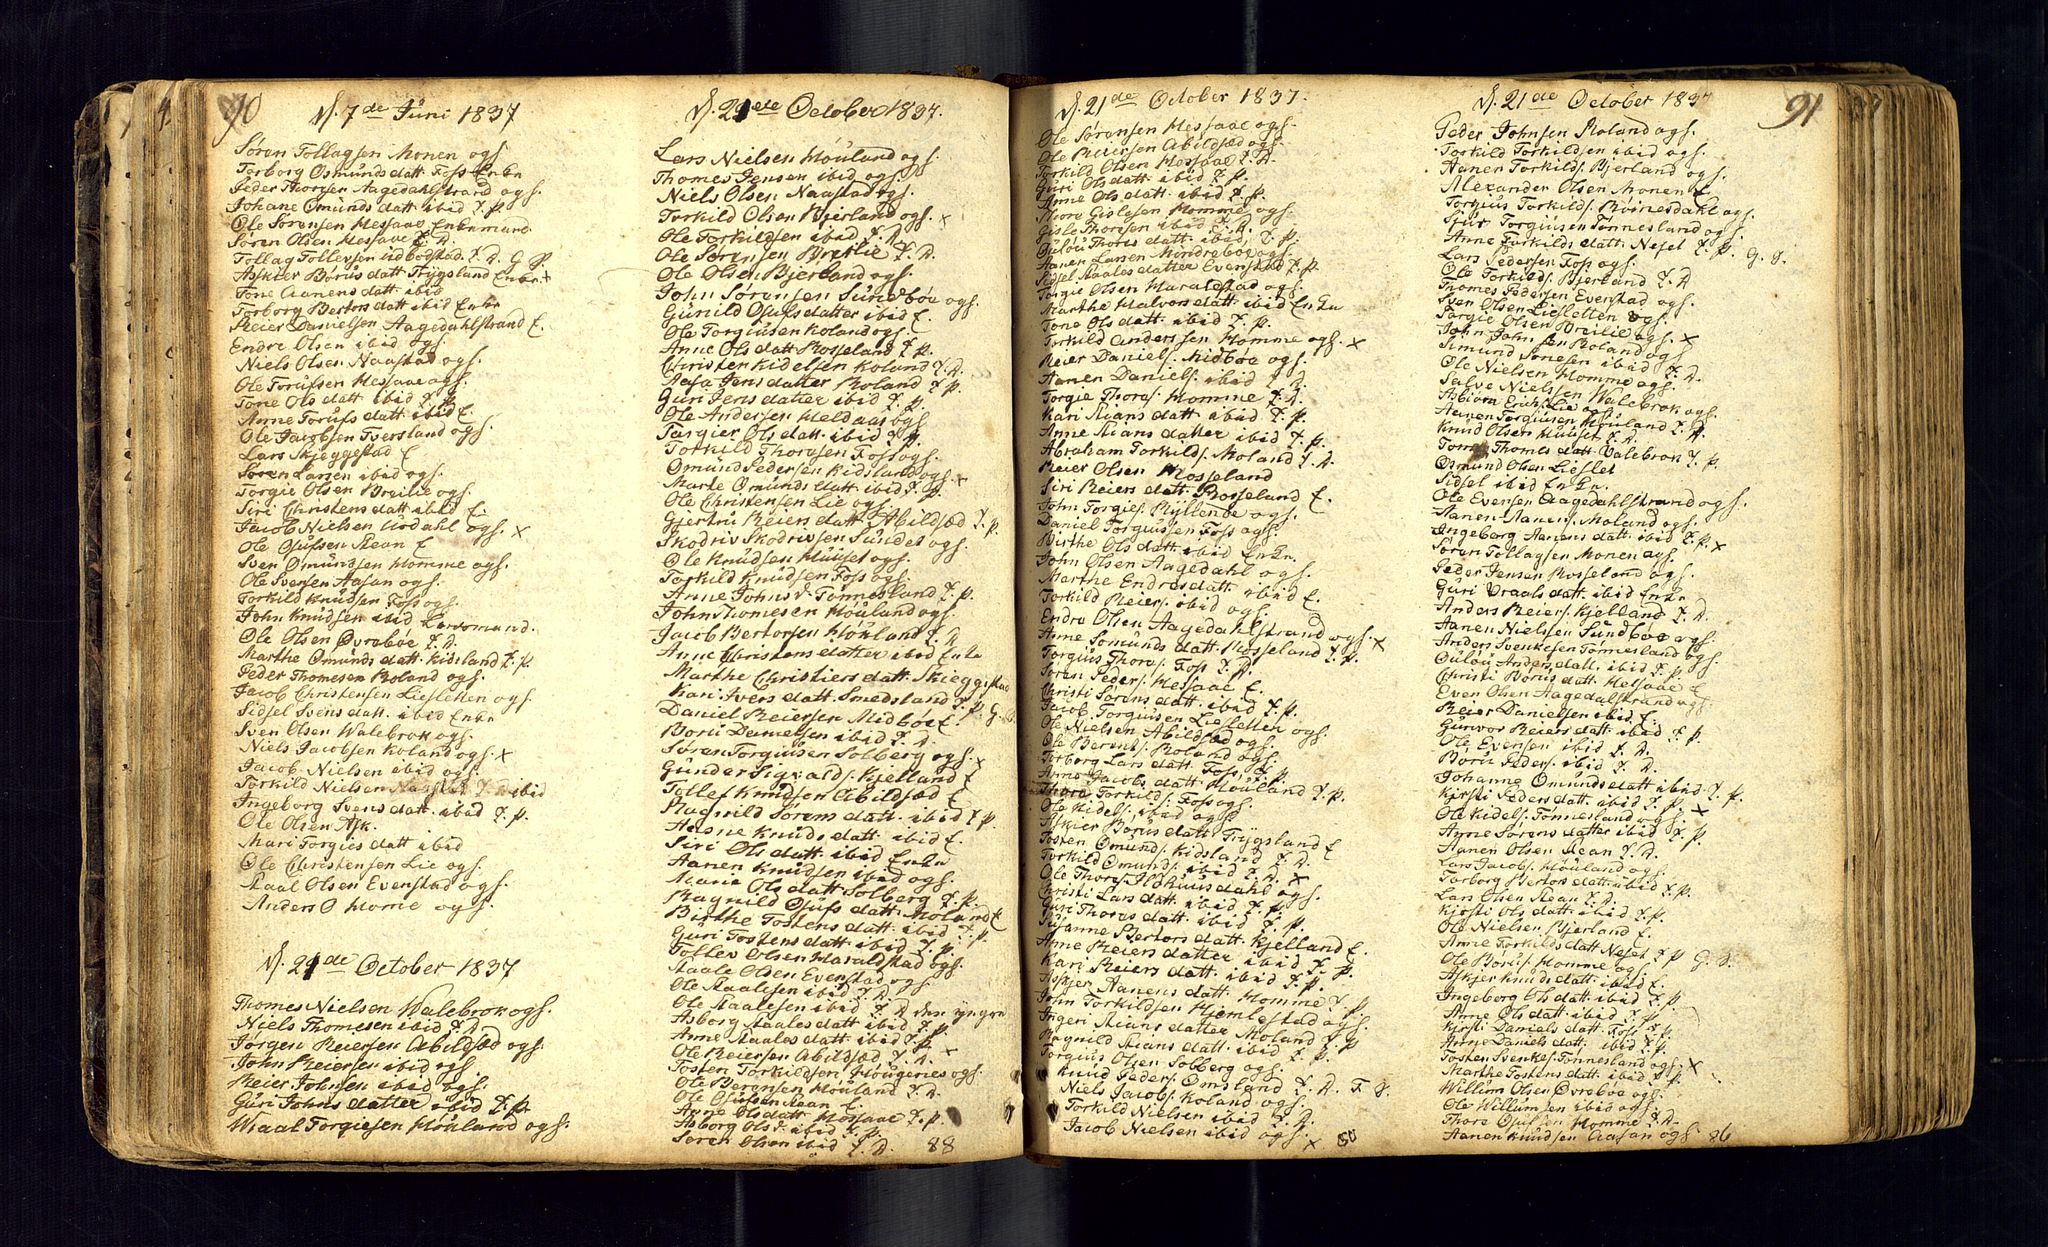 90
d. 7de Juni 1837
Søren Tollagsen Monen ogs.
Torborg Osmunds datt Foss Enkn
Peder Thorsen Aagedahlstrand ogs.
Johane Omunds datt ibid T. P.
Ole Sørensen Messaae Enkemand
Søren Olsen Messaae T. D.
Tollag Tollevsen Udbodstad T. D. G. P
Askier Børus datt Trygsland Enkn
Tone Aanens datt ibid
Torborg Bertors datt ibid Enkn
Reier Danielsen Aagedahlstrand E.
Endre Olsen ibid ogs.
Niels Olsen Naastad ogs.
Ole Torufsen Messaae ogs.
Tone Ols datt ibid T. P.
Anne Torufs datt ibid E.
Ole Jacobsen Tversland ogs.
Lars Skjeggestad E
Søren Larsen ibid ogs.
Torgie Olsen Breilie ogs.
Siri Christens datt ibid E.
Jacob Nielsen Urdahl ogs. x
Ole Ojufsen Rean E
Sven Omundsen Homme ogs.
Ole Svensen Aasan ogs.
Torkild Knudsen Foss ogs.
John Knudsen ibid
Ole Olsen Øvrebøe T. D.
Marthe Omunds datt. Kidsland T. P.
Peder Thomesen Roland ogs.
Jacob Christensen Liesletten ogs.
Sidsel Svens datt. ibid Enkn
Sven Olsen Walebrok ogs.
Niels Jacobsen Koland ogs. x
Jacob Nielsen ibid ogs.
Torkild Nielsen T. D. ibid
Ingeborg Svens datt. ibid T. P.
Ole Olsen Ask.
Mari Torgies datt ibid
Ole Christensen Lie ogs.
Staal Olsen Evenstad ogs.
Anders O Home ogs.
d. 21de October 1837
Thomes Nielsen Walebrok ogs.
Niels Thomesen ibid T. D.
Jørgen Reiersen Abildsæd ogs.
John Reiersen ibid ogs.
Reier Johnsen ibid ogs.
Guri Johns datter ibid T. P.
Wraal Torgiesen Houland ogs.
d. 21de October 1837.
Lars Nielsen Houland ogs.
Thomes Jensen ibid ogs.
Niels Olsen Naastad ogs.
Torkild Olsen Bjerland ogs. x
Ole Torkildsen ibid T. D.
Ole Sørensen Breilie T. D.
Ole Olsen Bjerland ogs.
John Sørensen Sundbøe ogs.
Gunild Ojufs datter ibid E
Ole Torgiusen Koland ogs.
Anne Ols datt Rosseland T. P.
Christen Kidelsen Koland T. D.
Aasa Jens datter Roland T. P.
Guri Jens datter ibid T. P.
Ole Andersen Meldaas ogs.
Targier Ols datt ibid T. P.
Torkild Thorsen Foss ogs.
Omund Pedersen Kidsland ogs. x
Marte Omunds datt ibid T. P.
Ole Christensen Lie ogs.
Gjertru Reiers datt Abildsæd T. P.
Skodriv Skodrivsen Sundet ogs.
Ole Knudsen Huuset ogs.
Torkild Knudsen Foss ogs.
Anne Johns d. Tonnesland T. P.
John Thomesen Houland ogs.
Jacob Bertorsen Houland T. D
Anne Christens datter ibid Enkn
Marthe Christiers datt Skieggestad
Kari Ivers datt Smedsland T. P. G. S.
Daniel Reiersen Midbøe E.
Boru Danielsen ibid T. D.
Søren Torgiusen Solberg ogs. x
Gunder Sigvalds. Kjelland E
Tollef Knudsen Abildsæd E
Ragnild Sørens datt. ibid T. P.
Aasne Knuds datt. ibid E.
Siri Ols datt. ibid Enkn
Aanen Knudsen ibid ogs.
Marie Ols datt Solberg T. P.
Ragnild Ojufs datt. Moland E
Birthe Tostens datt. ibid T. P.
Guri Tostens datt. ibid T. P.
Tollev Olsen Haraldstad ogs.
Staale Olsen Evenstad ogs.
Ole Staalesen ibid T. D.
Ole Staalesen ibid T. D den yngre
Asborg Staales datt ibid T. P.
Anne Staales datt ibid T. P.
Ole Reiersen Abildsæd T. D. x
Tosten Torkildsen Hougenes ogs.
Ole Berentsen Houland T. D.
Ole Ojufsen Rean E
Anne Ols datt Messaae T. P.
Asborg Ols d. ibid T. P.
Søren Olsen ibid T. D. 88
d. 21de October 1837.
Ole Sørensen Messaae ogs.
Ole Reiersen Abildsæd ogs.
Torkild Olsen Messaae T. D.
Guri Ols datt ibid T. P.
Anne Ols datt ibid T. P.
Thore Gislesen Homme ogs.
Gisle Thoresen ibid T. D.
Gulou Thores datt. ibid T. P.
Aanen Larsen Mindrebøe ogs.
Sidsel Staales datter Evenstad T. P.
Torgie Olsen Haraldstad ogs.
Marthe Halvors datt ibid Enkn
Tone Ols datt ibid T. P.
Torkild Anderssen Homme ogs. x
Reier Daniels. Midbøe ogs.
Aanen Daniels. ibid T. D.
Torgie Thors. Homme T. D.
Kari Stians datt. ibid T. P.
Anne Stians datter ibid T. P.
Abraham Torkilds. Moland T. D.
Reier Olsen Rosseland
Siri Reiers datt. Rosseland E.
John Torgies. Ryllenøe ogs.
Daniel Torgiussen Foss ogs.
Birthe Ols datt. ibid Enkn
John Olsen Aagedahl ogs.
Marthe Endres datt. ibid E.
Torkild Reiers. ibid ogs.
Endre Olsen Aagedahlstrand ogs. x
Anne Somunds datt. Rosseland T. P.
Torgius Thors. Foss T. D.
Søren Peders. Messaae E.
Christi Sørens datt. ibid T. P.
Jacob Torguisen Liesletten ogs.
Ole Nielsen Abildsæd ogs.
Ole Berents. Roland ogs.
Torborg Lars datt. Foss T. P.
Anne Jacobs datt. Houland T. P.
Thore Torkilds. Foss ogs.
Ole Kidels. ibid ogs.
Askier Borus datt Trygsland E
Tosten Omunds. Kidsland T. D.
Torkild Omunds. ibid T. D. x
Ole Thors. Ildhuusdahl ogs.
Christi Lars datt ibid T. P.
Guri Thores datt. ibid T. P.
Susanne Bertors datt. Kjelland E.
Anne Reiers datter ibid T. P.
Kari Reiers datt. ibid T. P.
Askjer Aanens datt. Homme T. P
John Torkildsen Hjemlestad ogs.
Ingeri Stians datter Moland T. P
Ragnild Stians datt. ibid T. P.
Torgius Olsen Solberg ogs.
Knud Peders. Omsland T. D. F. S.
Niels Jacobs. Koland ogs.
Torkild Nielsen ibid T. D.
Jacob Nielsen ibid ogs. x
91
d. 21de October 1837
Peder Johnsen Roland ogs.
Torkild Torkildsen ibid ogs.
Aanen Torkilds. Bjerland ogs.
Alexander Olsen Monen E
Torgius Torkilds. Boinesdahl ogs.
Siur Torgiusen Tonnesland ogs.
Anne Torkilds datt. Neset T. P. G. S.
Lars Pedersen Foss ogs.
Ole Torkilds. Bjerland T. D.
Thomes Pedersen Everstad ogs.
Sven Olsen Liesletten ogs.
Torgie Olsen Breilie ogs. x
John Johnsen Roland ogs
Simund Sonesen ibid T. D.
Ole Nielsen Homme ogs.
Salve Nielssen Walebrok ogs.
Asbiørn Erichs. Lie ogs.
Aanen Torgiusen Houland ogs.
Knud Olsen Huuset T. D.
Tone Thomes datt Valebrok T. P.
Osmund Olsen Lieslet
Sidsel ibid Enkn.
Ole Evensen Aagedahlstrand ogs.
Aanen Aanens. Moland ogs.
Ingeborg Aanens datt. ibid T. P. x
Søren Tollagsen Monen ogs.
Peder Jensen Rosseland ogs.
Guri Vraals datt. ibid Enkn
Anders Reiers. Kjelland T. D.
Aanen Nielsen Sundbøe ogs.
Anders Svenkesen Tonnesland ogs.
Gulou Anders datt. ibid T. P.
Christi Børus datt. Messaae E
Even Olsen Aagedalstrand ogs.
Reier Danielsen ibid E.
Gunvor Reiers datt ibid T. P.
Ole Evensen ibid T. D.
Boru Peders. ibid T. D.
Johanne Omunds datt ibid T. P.
Kirsti Peders datt. ibid T. P. x
Ole Kidels. Tonnesland ogs.
Anne Sørens datter ibid T. P.
Aanen Olsen Rean T. D.
Lars Jacobs. Houland ogs.
Torborg Bertors datt. ibid T. P.
Lars Olsen Rean T. D.
Kjersti Ols datt. ibid T. P.
Ole Nielsen Bjerland E.
Anne Torkilds datt. Neset T. P. G. S.
Ole Børus. Homme ogs.
Askjer Knuds datt. ibid E.
Ingeborg Ols datt. ibid T. P.
Anne Ols datt. ibid T. P.
Kjersti Daniels datt. Foss T. P.
Anne Daniels datt. ibid T. P.
Tosten Svenkes. Tonnesland ogs. x
Marthe Tostens datt. ibid T. P.
Willum Olsen Øvrebøe ogs.
Ole Willumsen ibid ogs.
Thore Ojufsen Homme T. D.
Aanen Knudsen Aasan ogs. 86